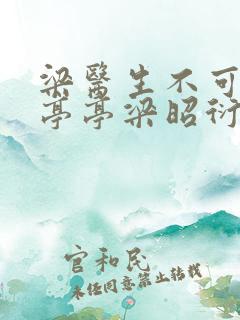 梁醫生不可
亭亭梁昭衍
官和民
未经同意禁止转载